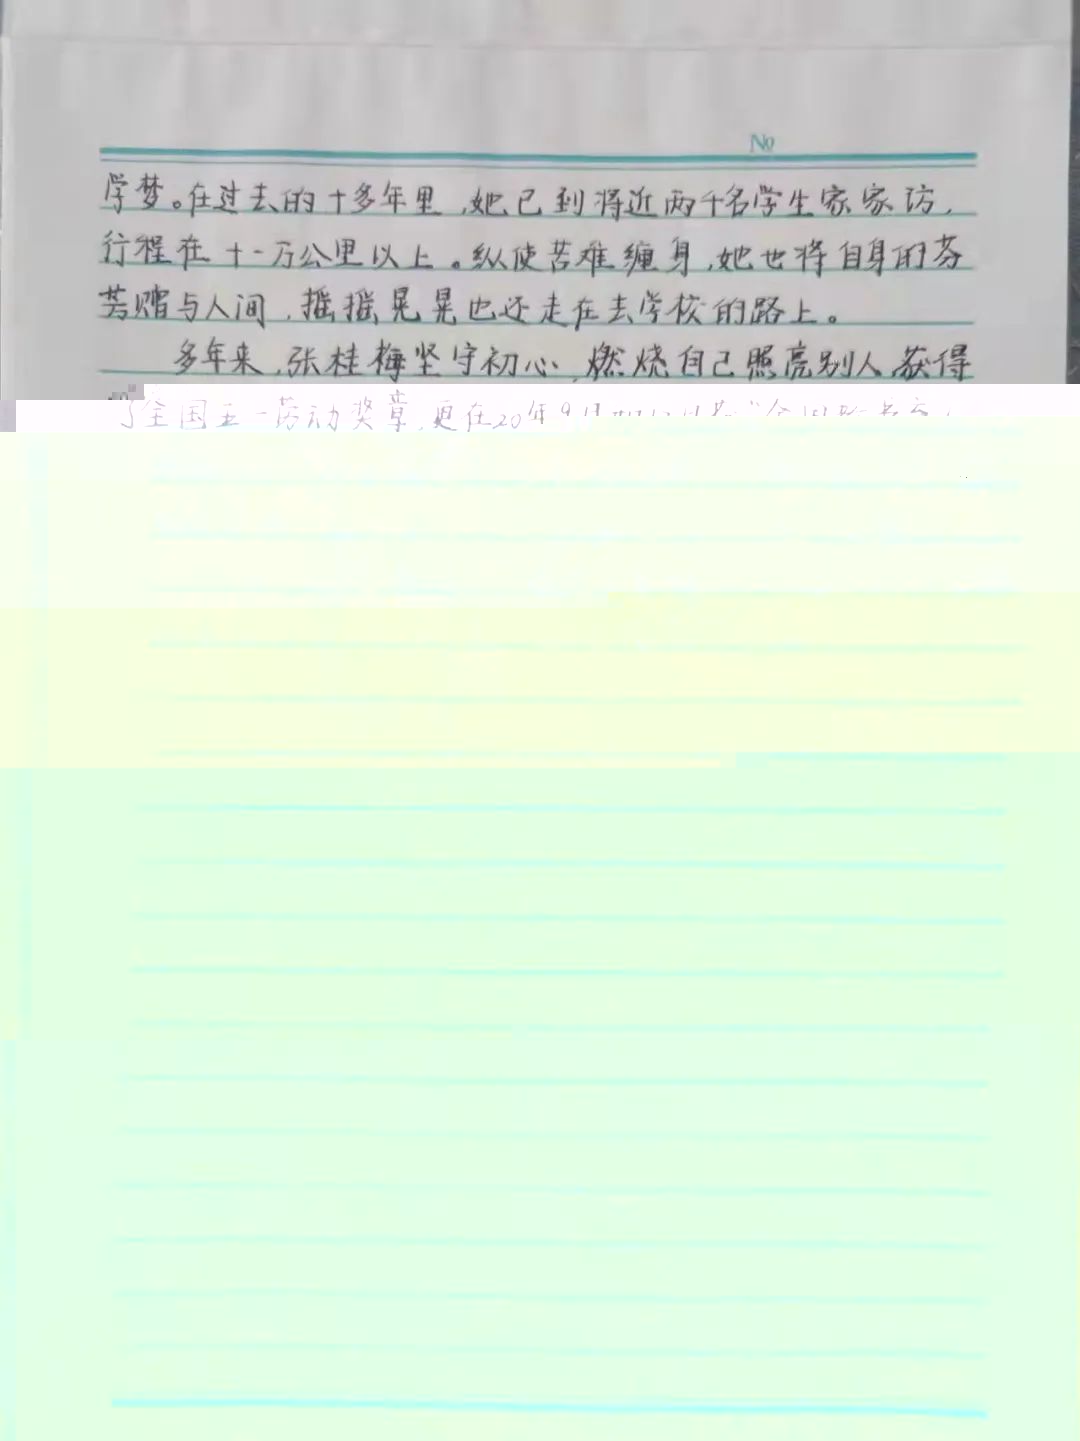 No
学梦。在过去的十多年里,她已到将近两千名学生家家访,
行程在十一万公里以上。纵使苦难缠身,她也将自身的芬
芳赠与人间,摇摇晃晃也还走在去学校的路上。
多年来,张桂梅坚守初心,燃烧自己照亮别人,获得
了全国五一劳动奖章,更在20年9月